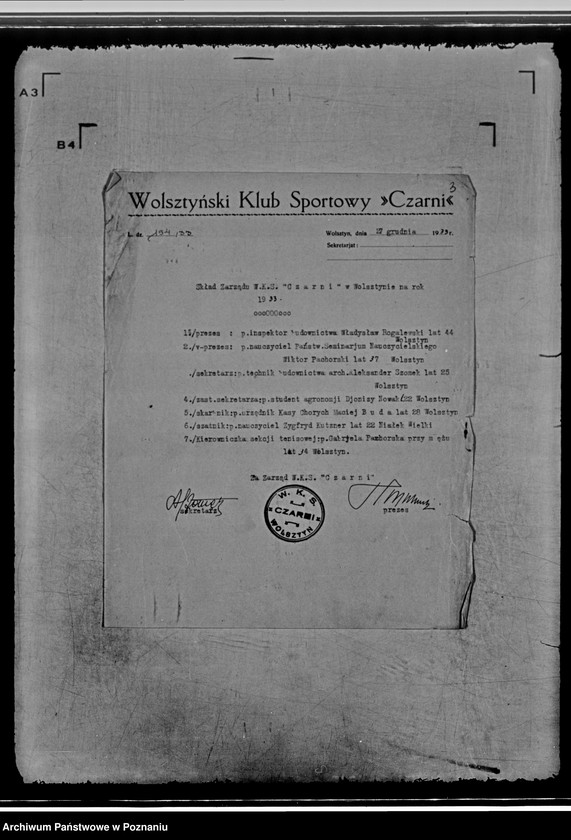 A3
B4
3
Wolsztyński Klub Sportowy »Czarni«
L. dz.
Wolsztyn, dnia 27 grudnia 1933 r.
Sekretarjat:
Skład Zarządu W.K.S. "C z a r n i" w Wolsztynie na rok
1933.
oooOOOooo
1./prezes : p.inspektor budownictwa Władysław Rogalewski lat 44
Wolsztyn
2./v-prezes: p.nauczyciel Państw.Seminarjum Nauczycielskiego
Wiktor Pazhorski lat 37 Wolsztyn
./sekretarz:p.technik budownictwa arch.Aleksander Szonek lat 25
Wolsztyn
4./zast.sekretarza:p.student agronomji Djonizy Nowak 22 Wolsztyn
5./skarbnik:p.urzędnik Kasy Chorych Maciej B u d a lat 28 Wolsztyn
6./szatnik:p.nauczyciel Zygfryd Kutzner lat 22 Białek Wielki
7./Kierowniczka sekcji tenisowej:p.Gabrjela Pazhorska przy mężu
lat 34 Wolsztyn.
Za Zarząd W.K.S. "C z a r n i"
sekretarz
prezes
W. K. S.
CZARNI
WOLSZTYN
Archiwum Państwowe w Poznaniu